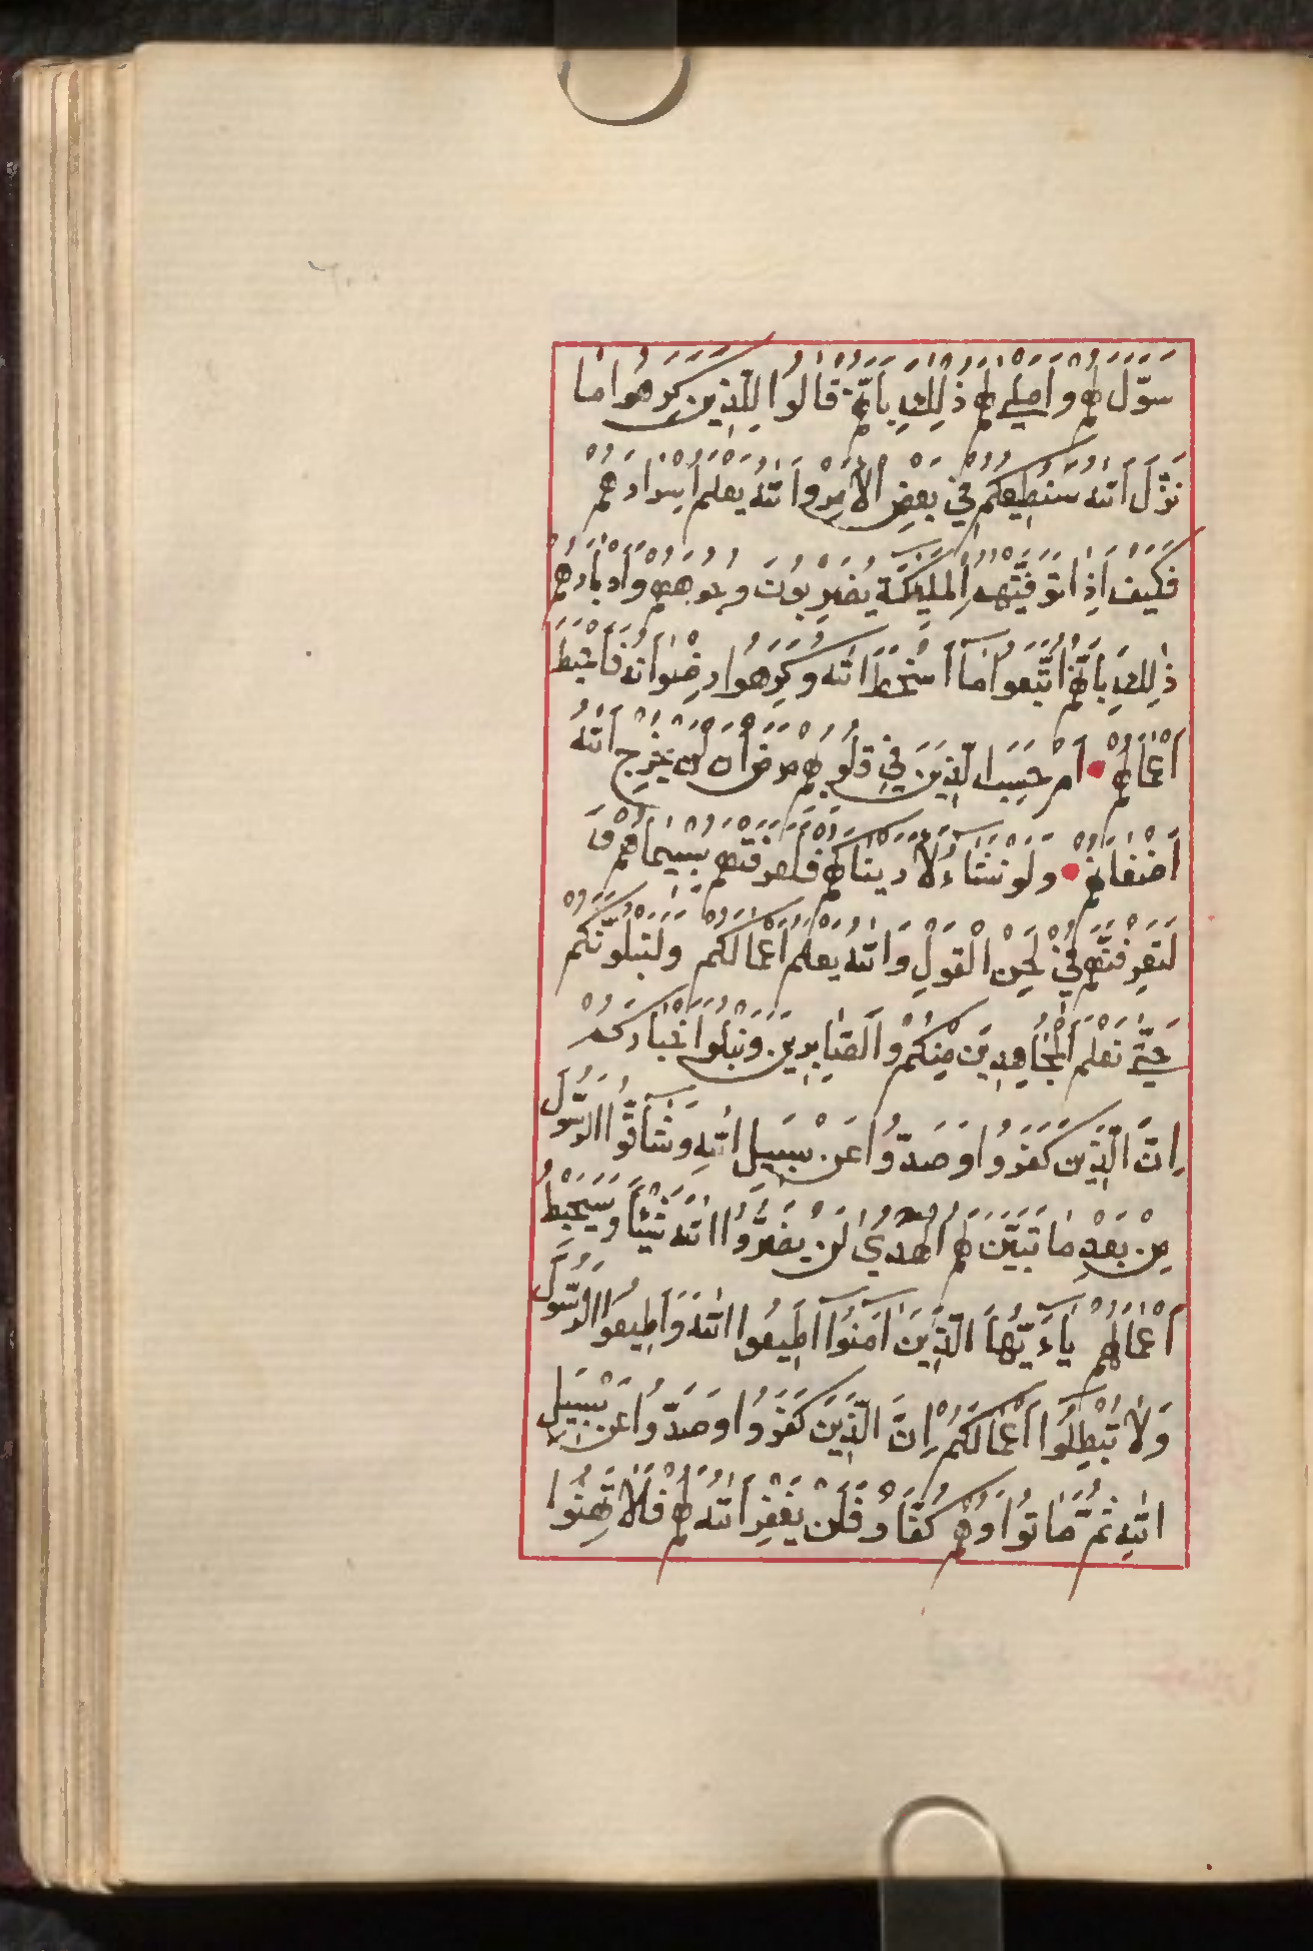 سَوَّلَ لَهُمْ وَأَمْلٰى لَهُمْ ذٰلِكَ بِأَنَّهُمْ قَالُوا لِلَّذِينَ كَرِهُوا مَا
نَزَّلَ اَللهُ سَنُطِيعُكُمْ فِي بَعْضِ الْأَمْرِ وَاَللهُ يَعْلَمُ اَسْرَارَهُمْ
فَكَيْفَ اِذَا تَوَفَّتْهُمُ اَلْمَلٰٓئِكَةُ يَضْرِبُونَ وُجُوهَهُمْ وَأَدْبَارَهُمْ
ذٰلِكَ بِأَنَّهُمُ اتَّبَعُوا مَآ اَسْخَطَ اَللهَ وَكَرِهُوا رِضْوَانَهُ فَأَحْبَطَ
اَعْمَالَهُمْ اَمْ حَسِبَ الَّذِينَ فِي قُلُوبِهِمْ مَرَضٌ اَنْ لَنْ يُخْرِجَ اَللهُ
اَضْغَانَهُمْ وَلَوْ نَشَآءُ لَأَرَيْنَاكَهُمْ فَلَعَرَفْتَهُمْ بِسِيمَاهُمْ وَ
لَتَعْرِفَنَّهُمْ فِي لَحْنِ الْقَوْلِ وَاَللهُ يَعْلَمُ اَعْمَالَكُمْ وَلَنَبْلُوَنَّكُمْ
حَتّٰى نَعْلَمَ اَلْمُجَاهِدِينَ مِنْكُمْ وَالصَّابِرِينَ وَنَبْلُوَا اَخْبَارَكُمْ
اِنَّ الَّذِينَ كَفَرُوا وَصَدُّوا عَنْ سَبِيلِ اللهِ وَشَآقُّوا الرَّسُولَ
مِنْ بَعْدِ مَا تَبَيَّنَ لَهُمُ الْهُدٰى لَنْ يَضُرُّوا اللهَ شَيْئًا وَسَيُحْبِطُ
اَعْمَالَهُمْ يَآءَيُّهَا الَّذِينَ اٰمَنُوٓا اَطِيعُوا اللهَ وَاَطِيعُوا الرَّسُولَ
وَلَا تُبْطِلُوٓا اَعْمَالَكُمْ اِنَّ الَّذِينَ كَفَرُوا وَصَدُّوا عَنْ سَبِيلِ
اللهِ ثُمَّ مَاتُوا وَهُمْ كُفَّارٌ فَلَنْ يَغْفِرَ اَللهُ لَهُمْ فَلَا تَهِنُوا